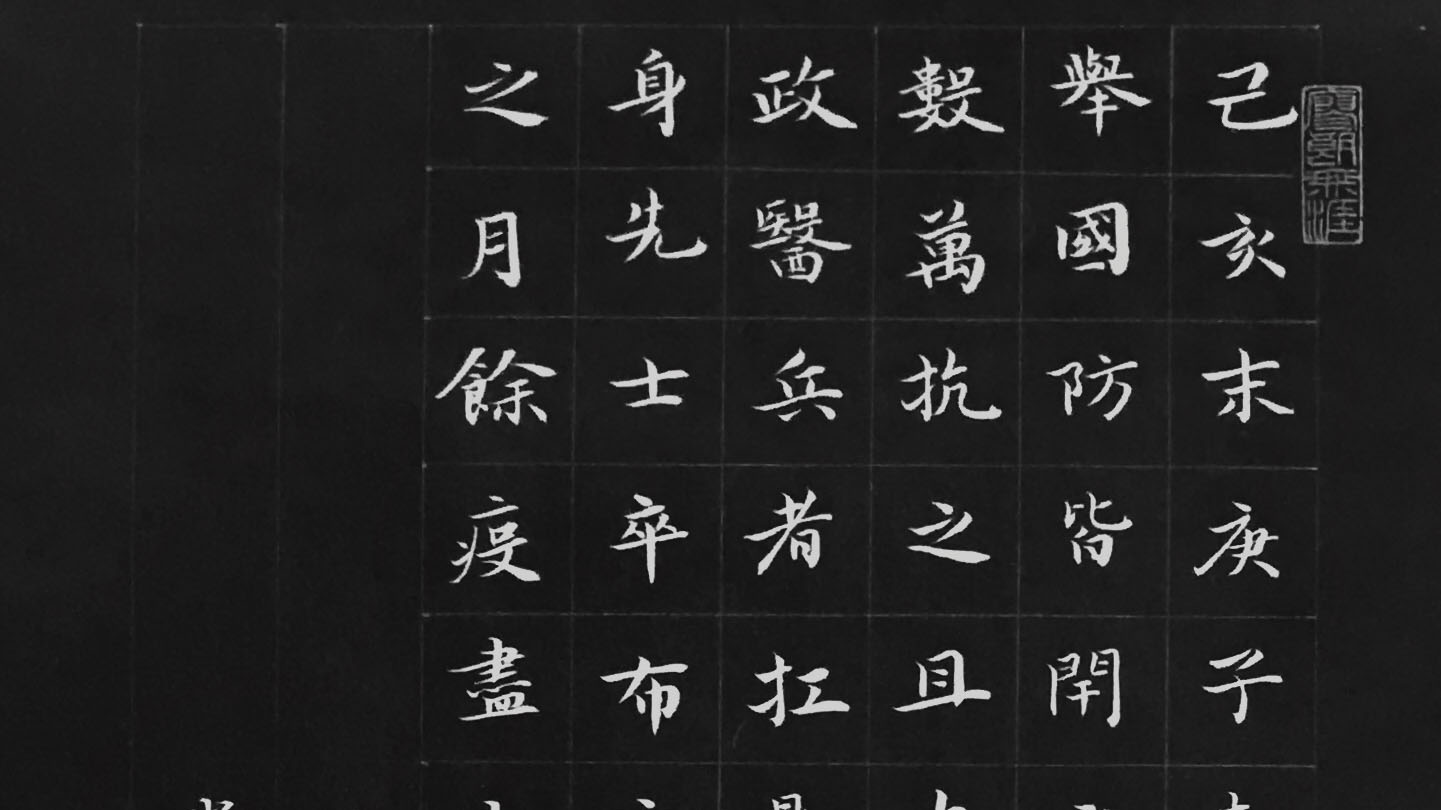 己亥末庚子
舉國防皆閈
數萬抗之且
政醫兵者扛
身先士卒布
之月餘疫盡